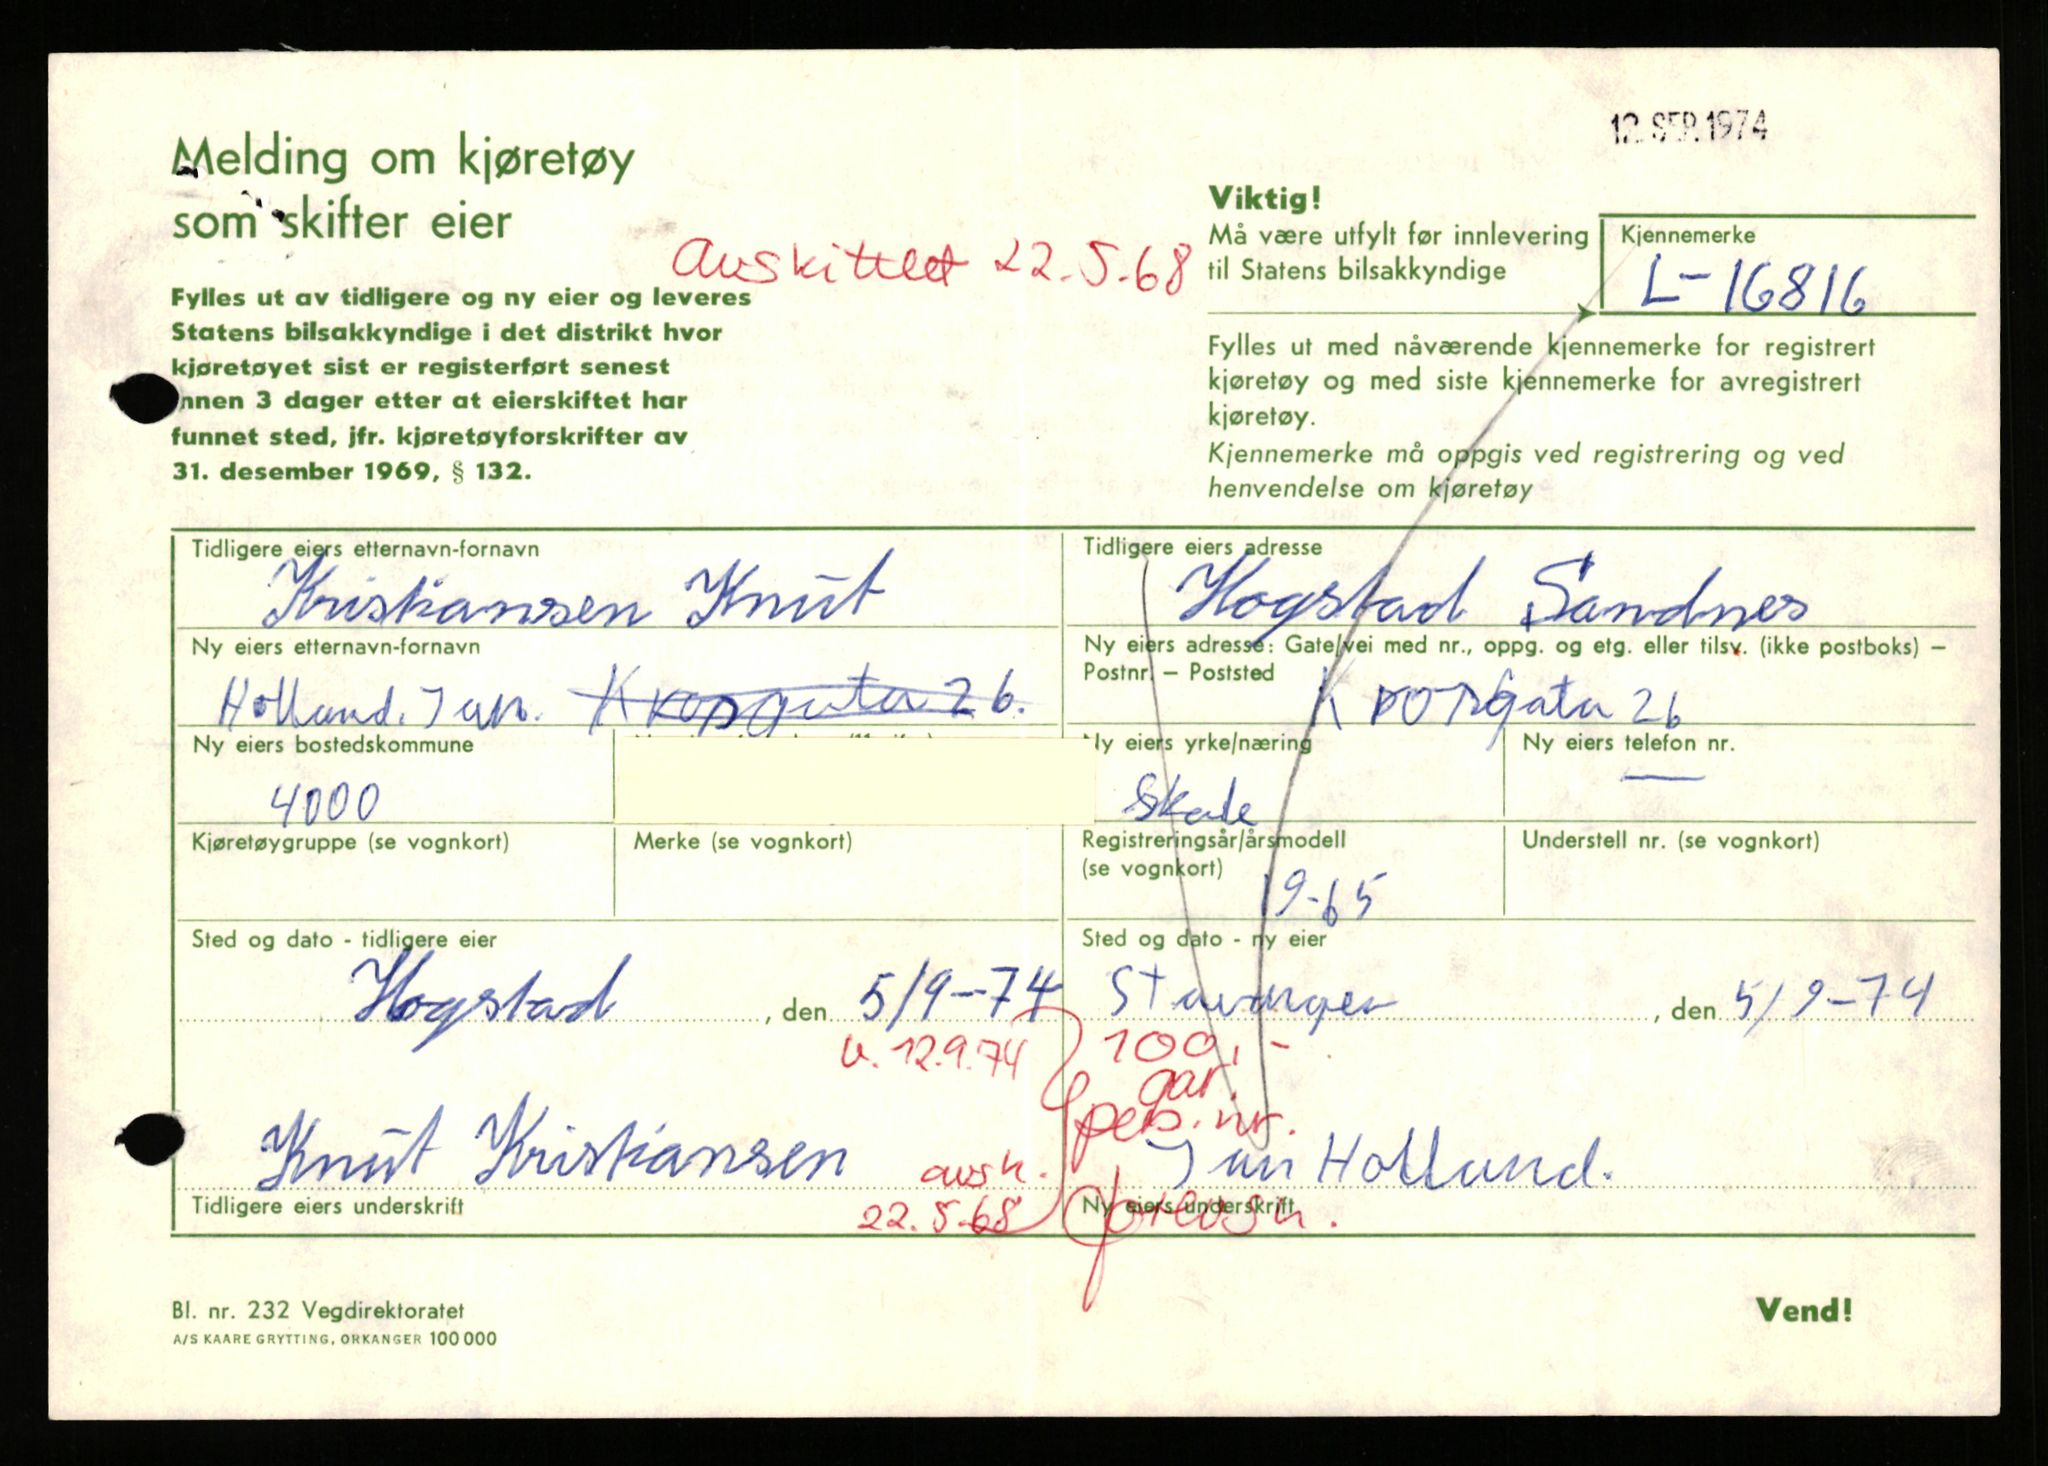 12. SEP. 1974
Melding om kjøretøy
som skifter eier
avskiltet 22.5.68
Fylles ut av tidligere og ny eier og leveres
Statens bilsakkyndige i det distrikt hvor
kjøretøyet sist er registerført senest
innen 3 dager etter at eierskiftet har
funnet sted, jfr. kjøretøyforskrifter av
31. desember 1969, § 132.
Viktig!
Må være utfylt før innlevering
til Statens bilsakkyndige
Kjennemerke
L-16816
Fylles ut med nåværende kjennemerke for registrert
kjøretøy og med siste kjennemerke for avregistrert
kjøretøy.
Kjennemerke må oppgis ved registrering og ved
henvendelse om kjøretøy
Tidligere eiers etternavn-fornavn
Kristiansen Knut
Tidligere eiers adresse
Hogstad Sandnes
Ny eiers etternavn-fornavn
Holland. Jan. 26.
Ny eiers adresse: Gate/vei med nr., oppg. og etg. eller tilsv. (ikke postboks) –
Postnr. – Poststed
26
Ny eiers bostedskommune
4000
Ny eiers yrke/næring
Ny eiers telefon nr.
—
Kjøretøygruppe (se vognkort)
Merke (se vognkort)
Registreringsår/årsmodell
(se vognkort)
19-65
Understell nr. (se vognkort)
Sted og dato - tidligere eier
Hogstad, den 5/9-74
Sted og dato - ny eier
Stavanger, den 5/9-74
v. 12.9.74
100,-
gar.
pers. nr.
Knut Kristiansen
avsk.
Jan Holland.
Tidligere eiers underskrift
22.5-68
Ny eiers underskrift
Bl. nr. 232 Vegdirektoratet
A/S KAARE GRYTTING, ORKANGER 100 000
Vend!